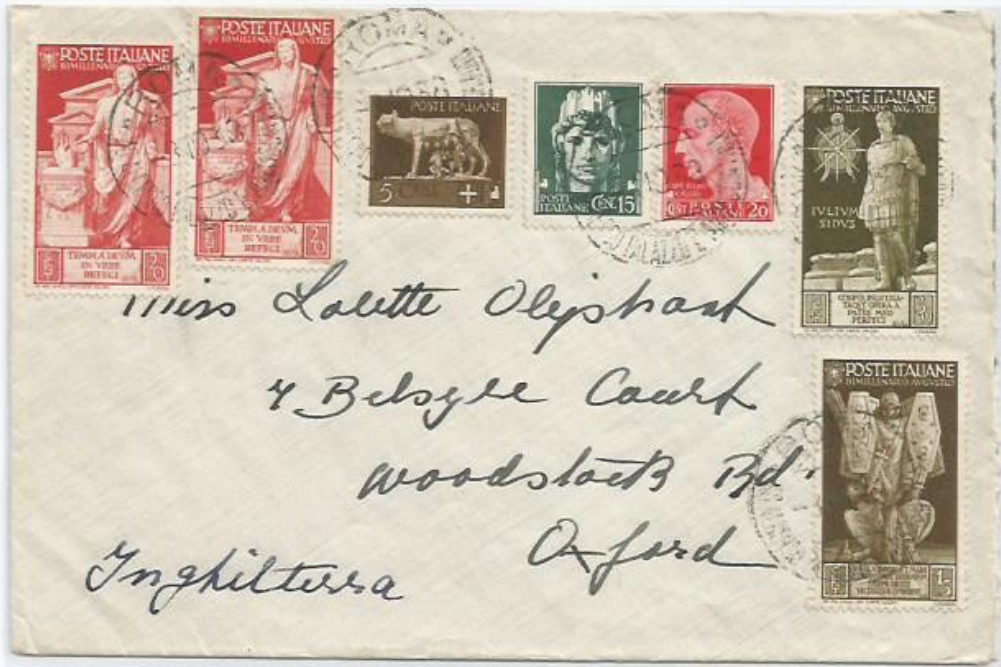 POSTE ITALIANE
BIMILLENARIO AVGVSTEO
TEMPLA DEVM
IN VRBE
REFECI
20
POSTE ITALIANE
BIMILLENARIO AVGVSTEO
TEMPLA DEVM
IN VRBE
REFECI
20
ROMA
POSTE ITALIANE
5
POSTE
ITALIANE CENT. 15
20
POSTE ITALIANE
BIMILLENARIO AVGVSTEO
IVLIVM
SIDVS
PERFECI
POSTE ITALIANE
BIMILLENARIO AVGVSTEO
15
Miss Lolette Oliphant
4 Belsyre Court
Woodstock Rd.
Oxford
Inghilterra